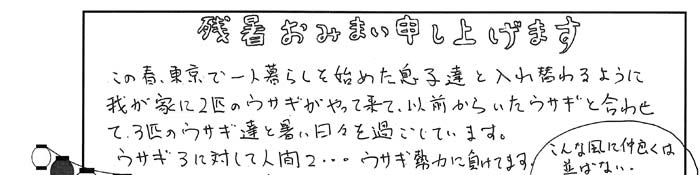 残暑おみまい申し上げます
この春、東京で一人暮らしを始めた息子達と入れ替わるように
我が家に2匹のウサギがやって来て、以前からいたウサギと合わせ
て、3匹のウサギ達と暑い日々を過ごしています。
ウサギ3に対して人間2・・・ウサギ勢力に負けてます。
こんな風に仲良くは
並ばない。